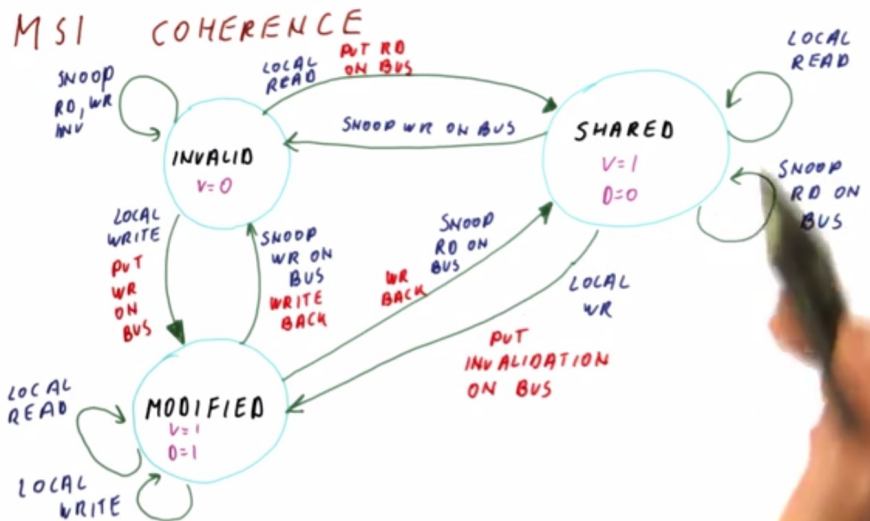 MSI COHERENCE
SNOOP
RD, WR
INV
LOCAL
READ
PUT RD
ON BUS
LOCAL
READ
SNOOP WR ON BUS
INVALID
V=0
SHARED
V=1
D=0
SNOOP
RD ON
BUS
LOCAL
WRITE
PUT
WR
ON
BUS
SNOOP
WR ON
BUS
WRITE
BACK
SNOOP
RD ON
BUS
WR
BACK
LOCAL
WR
PUT
INVALIDATION
ON BUS
MODIFIED
V=1
D=1
LOCAL
READ
LOCAL
WRITE